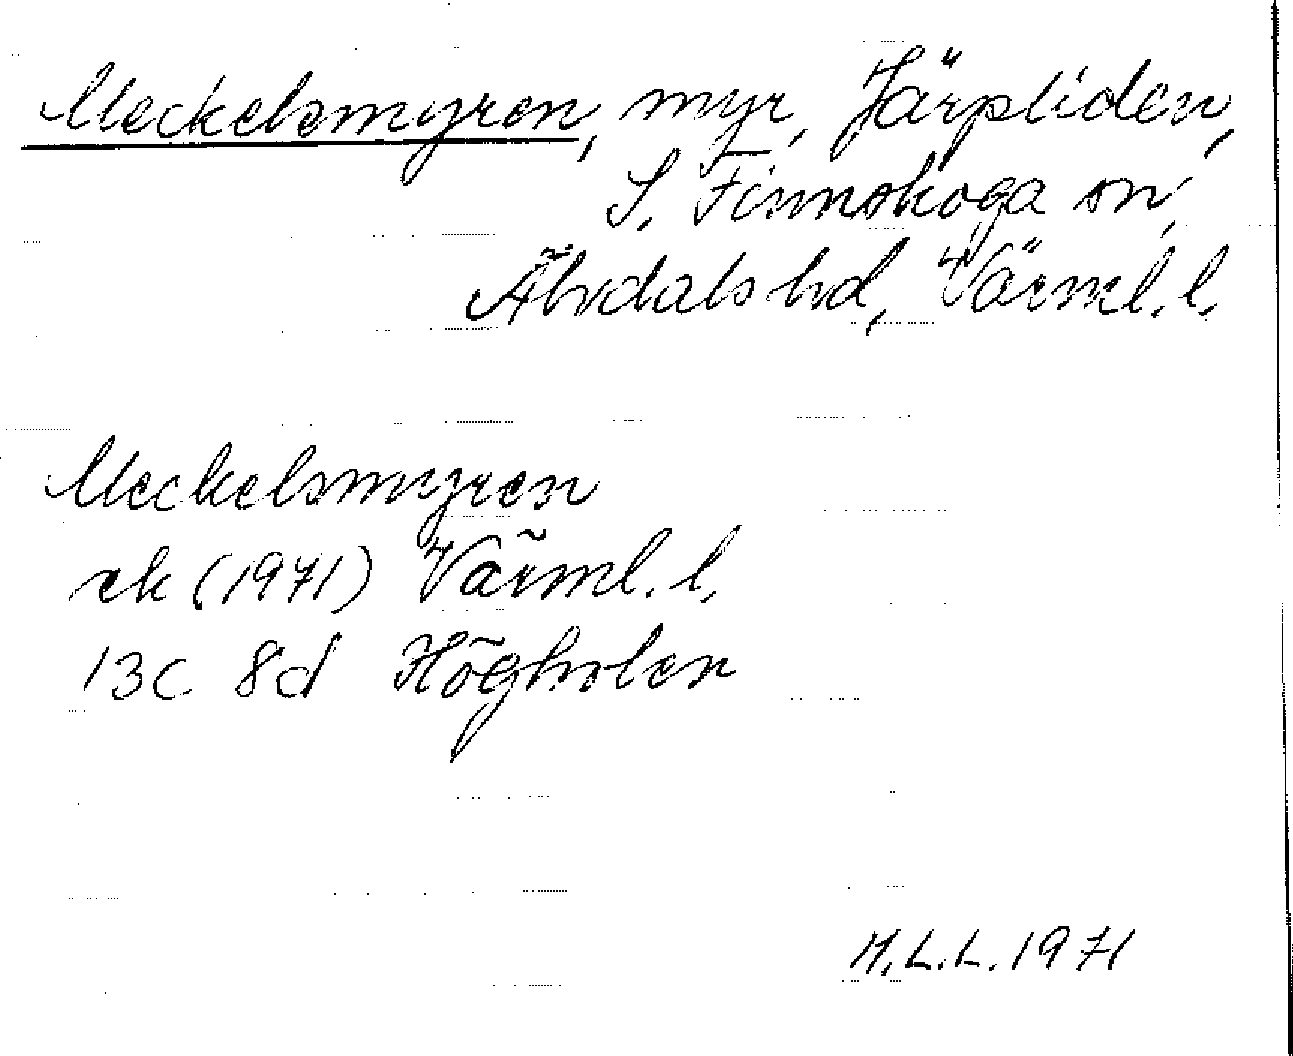 Meckelsmyren, myr, Järpliden,
S. Finnskoga sn,
Älvdals hd, Värml. l.
Meckelsmyren
ek (1971) Värml. l.
13c 8d Högholen
M.L.L. 1971